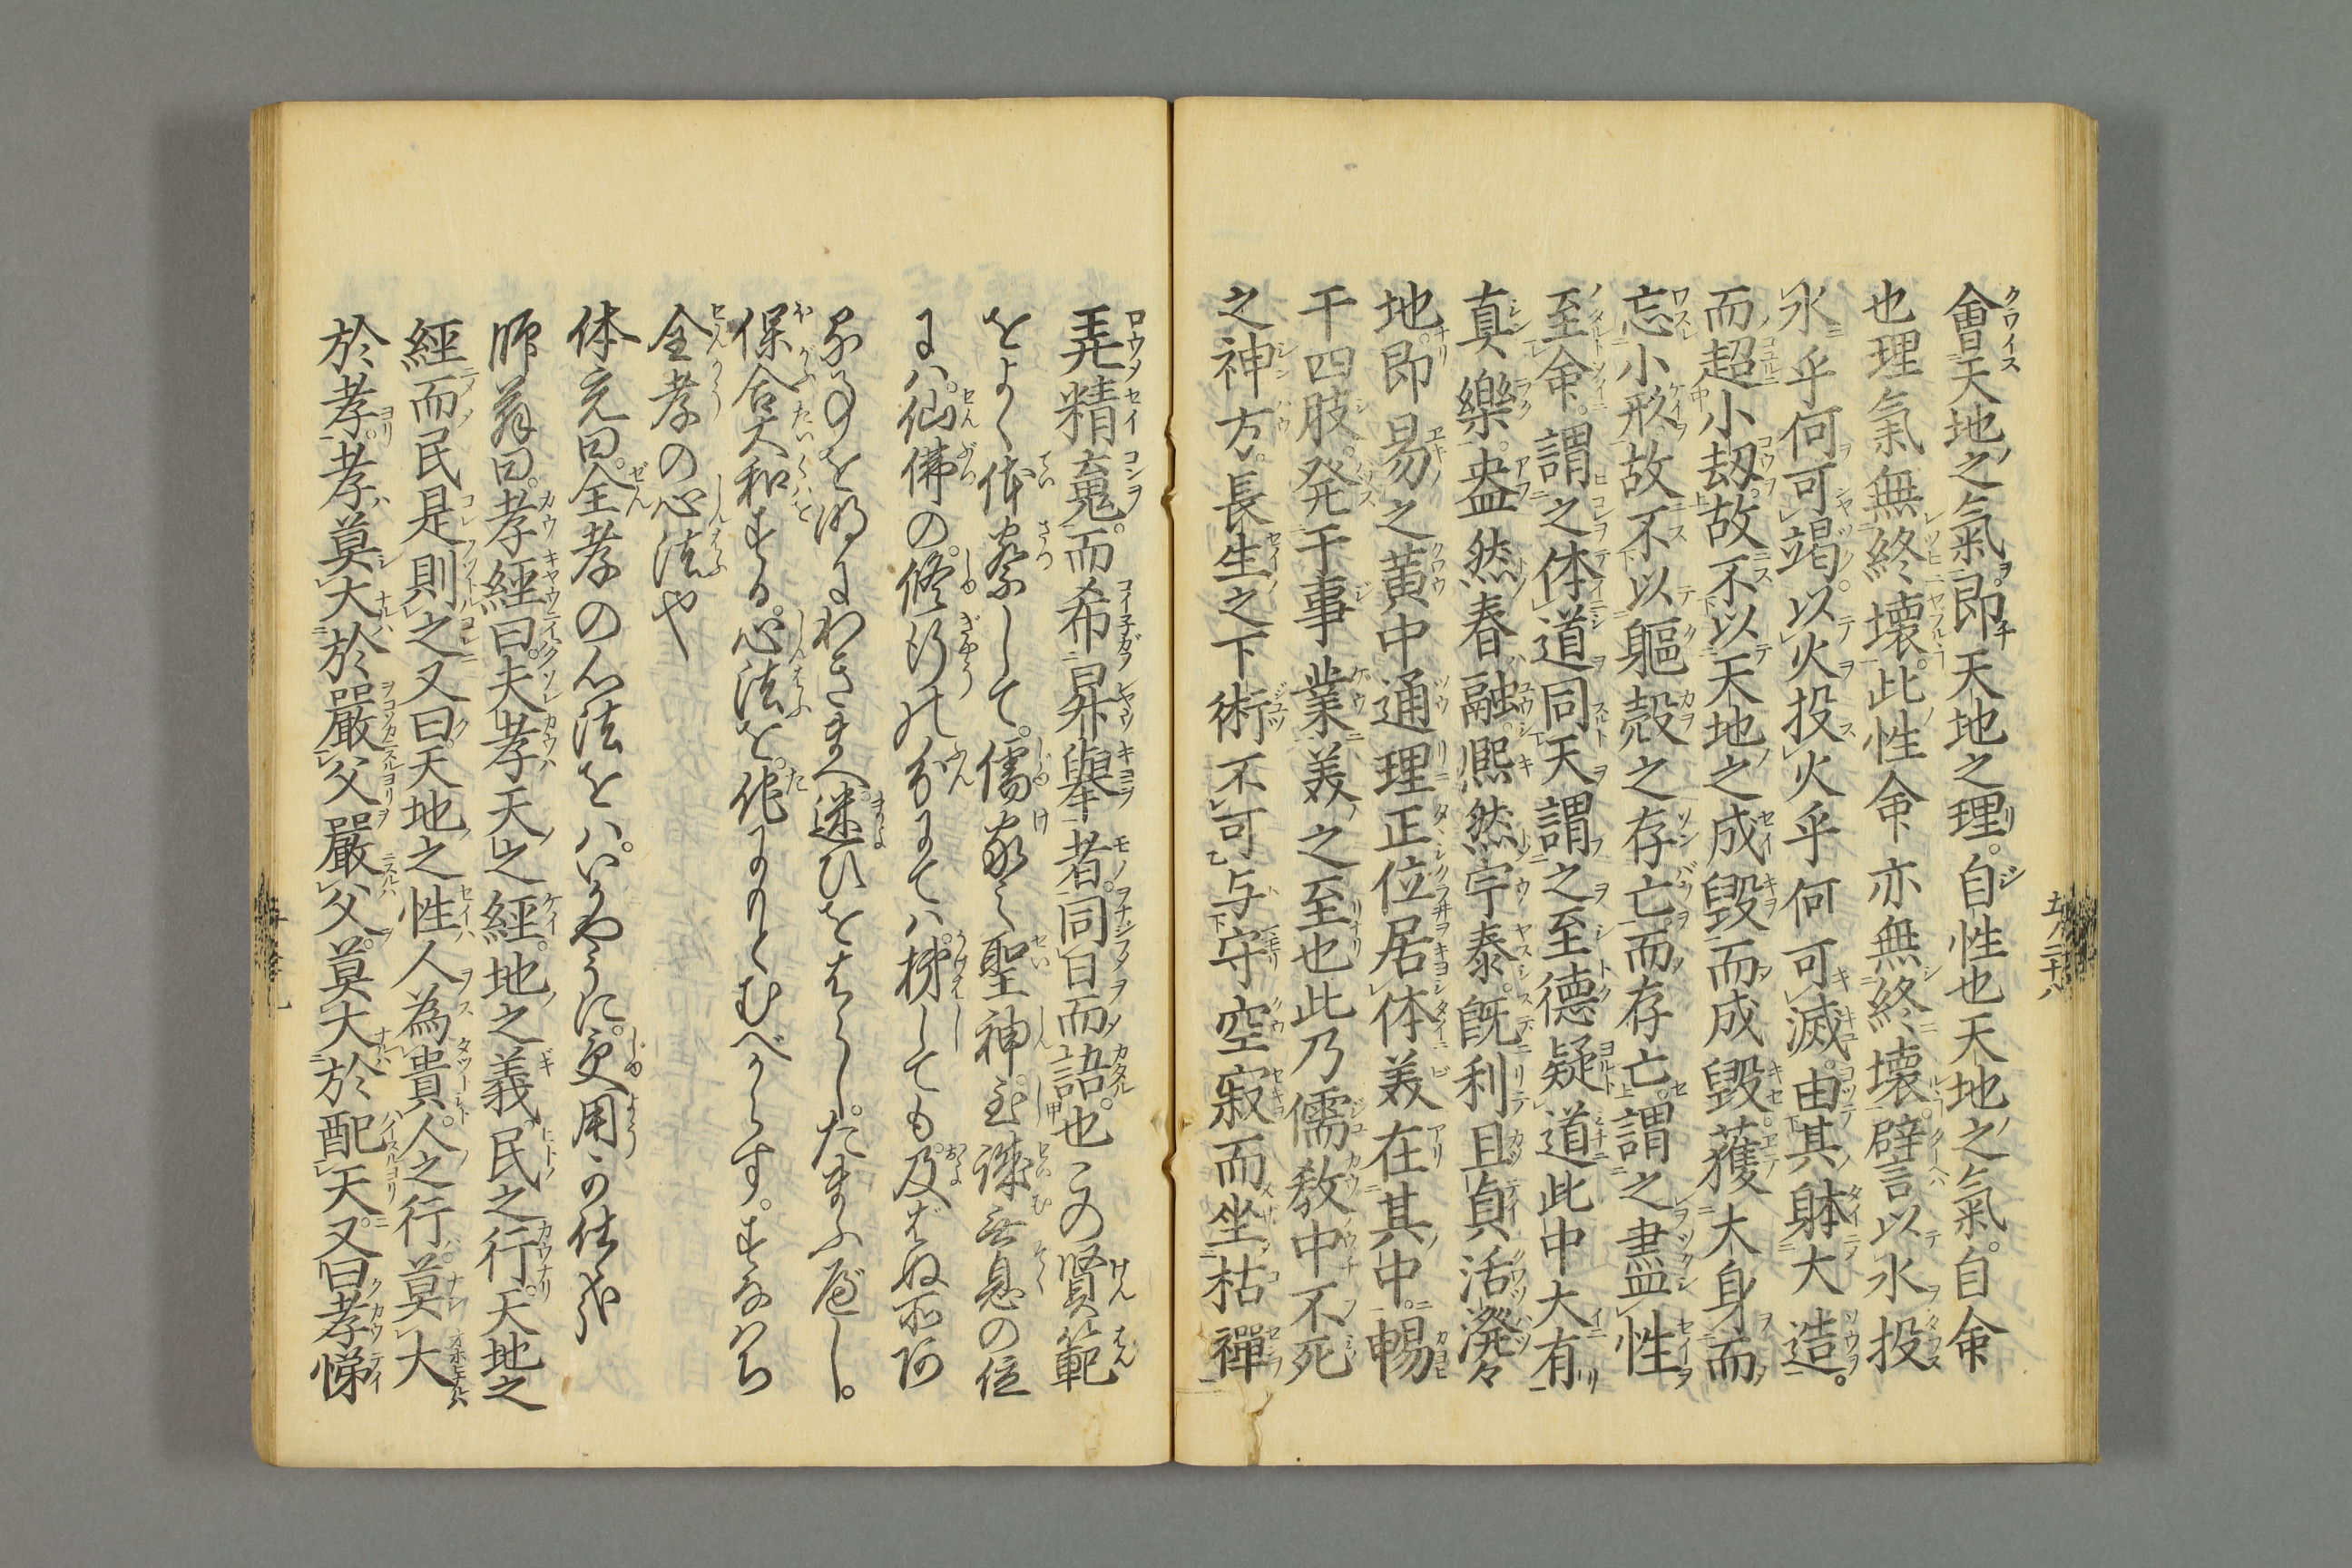 會天地之氣即天地之理自性也天地之氣自命
也理氣無終壊此性命亦無終壊譬言以水投
水乎何可竭以火投火乎何可滅由其躰大造
而超小刼故不以天地之成毀而成毀獲大身而
忘小形故不以軀殻之存亡而存亡謂之盡性
至命謂之体道同天謂之至德疑道此中大有
真樂盎然春融熈然宇泰既利且貞活潑々
地即易之黄中通理正位居体美在其中暢
于四肢発于事業美之至也此乃儒教中不死
之神方長生之下術不可与守空寂而坐枯禪
弄精䰟而希昇舉者同日而語也この賢範
をよく体察して儒家之聖神至誠無息の位
にハ仙佛の修行の分にては梯しても及ばぬ所
なる事を明にわきまへ迷ひをはらしたまふべし
保合大和する心法を他にのもとむべからずすなはち
全孝の心法也
体充曰全孝の心法をバいかやうに受用可仕哉
師翁曰孝經曰夫孝天之經地之義民之行天地之
經而民是則之又曰天地之性人為貴人之行莫大
於孝孝莫大於嚴父嚴父莫大於配天又曰孝悌